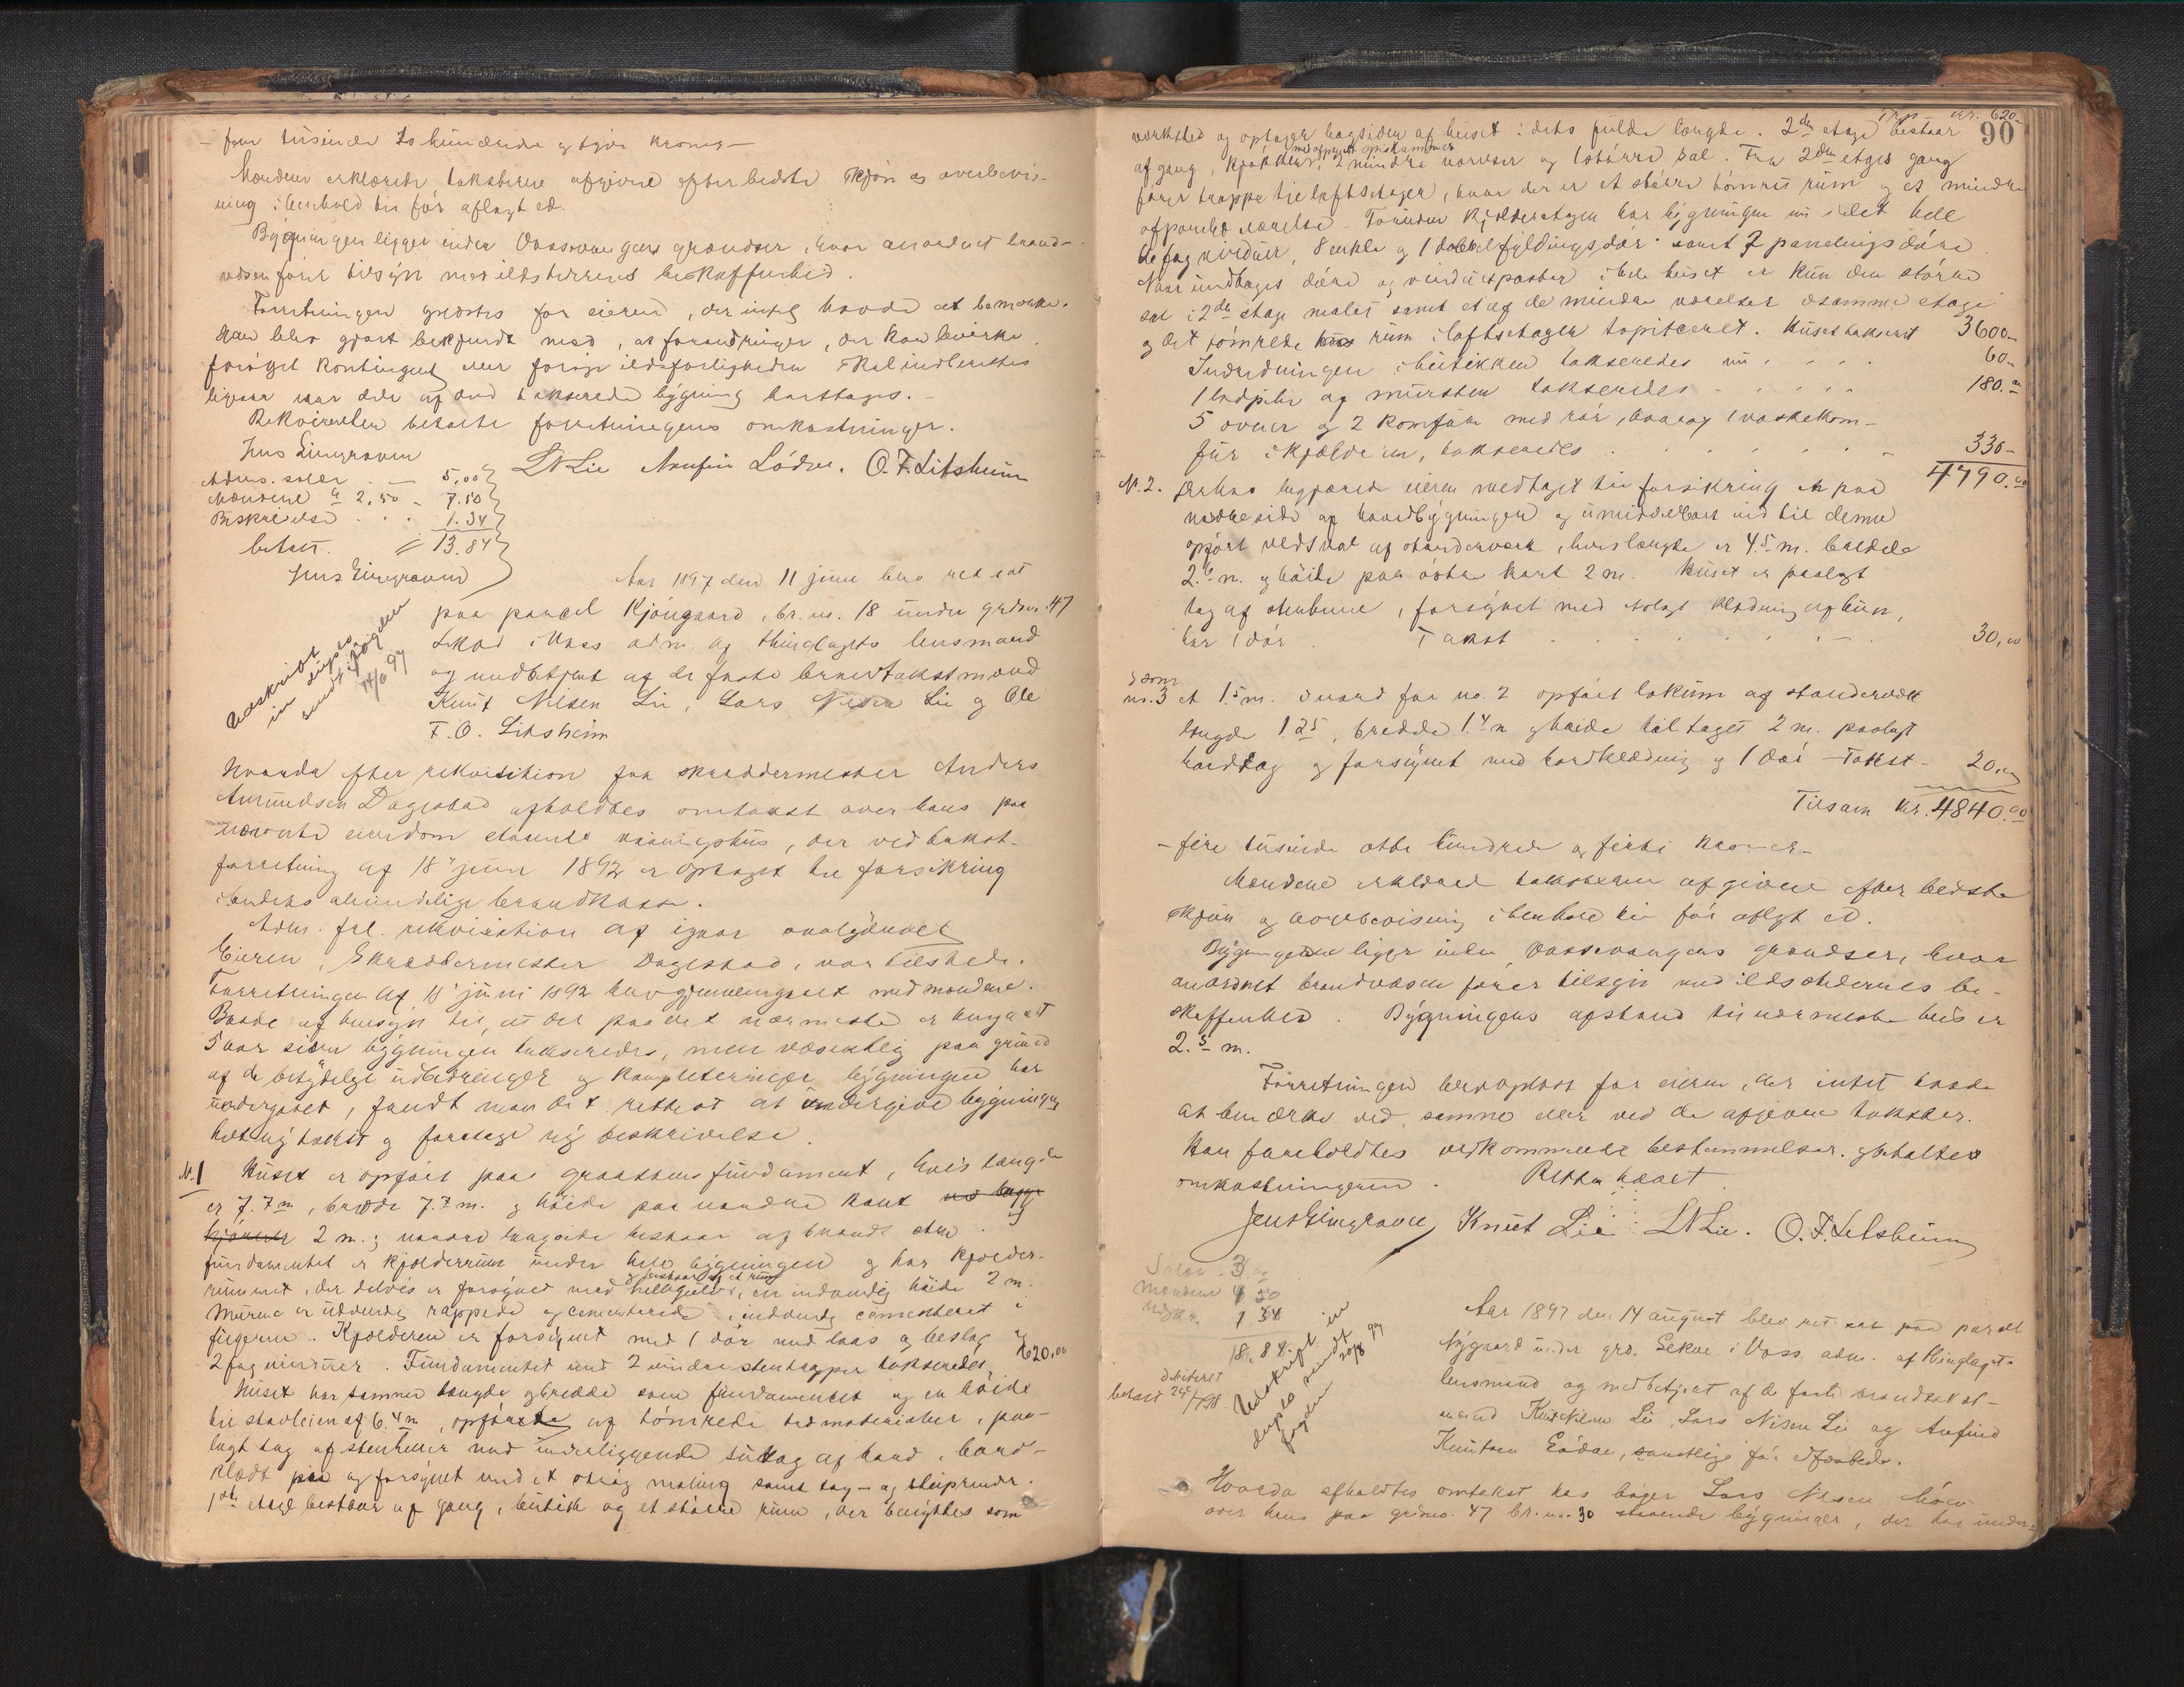 - fem tusinde to hundrede og tyve kroner -
Mændene erklærede taksterne afgivne efter bedste skjøn og overbevis-
ning i henhold til før aflagt ed.
Bygningen ligger inden Vossevangens grændser, hvor anordnet brand-
væsen fører tilsyn med ildstedernes beskaffenhed.
Forretningen oplæstes for eieren, der intet havde at bemærke.
Han blev gjort bekjendt med, at forandringer, der kan bevirke
forøget kontingent eller forøge ildsfarligheden skal indberettes
ligesaa naar dele af den takserede bygning borttages. -
Rekvirenten betalte forretningens omkostninger.
Jens Gjengraven
LNLie Anfin Lødve. O. F. Litsheim
Adms. salær . - 5,00
Mændene a 2,50 - 7.50
Beskrivelse . . 1.34
betalt. 13.84
Jens Gjengraven
Aar 1897 den 11 juni blev ret sat
paa parcel Kjøngaard, br. no. 18 under grdsno. 47
i Voss adm. af thinglagets lensmand
og medbetjent af de faste brandtakstmænd
Knut Nilsen Lie, Lars Nilsen Lie og Ole
F. O. Litsheim
Udskrift
in duplo
sendt fogden
14/6 97
Hvorda efter rekvisition fra skræddermester Anders
Amundsen Dagestad afholdtes omtakst over hans paa
nævnte eiendom staaende vaaningshus, der ved takst-
forretning af 18' juni 1892 er optaget til forsikring
i landets almindelige brandkasse.
Adm. frl. rekvisition af igaar
Eieren, Skræddermester Dagestad, var tilstede.
Forretningen af 18' juni 1892 blev gjennemgaaet med mændene.
Baade af hensyn til, at det paa det nærmeste er hengaaet
5 aar siden bygningen takseredes, men væsentlig paa grund
af de betydelige udbedringer og kompleteringer bygningen har
undergaaet, fandt man det rettest at undergive bygningen
helt ny takst og foretage ny beskrivelse.
N. 1 Huset er opført paa graastens fundament, hvis længde
er 7.7 m, bredde 7.7 m. og høide paa nordre kant ved begge
hjørner 2 m. og langside bestaar af brændt sten.
Fundamentet er kjælderrum under hele bygningen og har kjælder-
rummet, der og bestaar af et rum er forsynet med hellegulv, en indvendig høide 2 m.
Murene er udvendig rappede og cementerede, indvendig cementeret i
fugerne. Kjælderen er forsynet med 1 dør med laas og beslag og
2 fag vinduer. Fundamentet med 2 mindre stentrapper takseredes 620,00
Huset har samme længde og bredde som fundamentet og en høide
til stavleien af 6.4 m, opførte af tømrede tædmaterialer, paa-
lagt tag af stenheller med underliggende sutag af bord, bord-
klædt paa og forsynet med et strøg maling samt tag- og stuprender.
1ste etage bestaar af gang, butik og et større rum, der benyttes som
90
Trsp - kr. 620-
verksted og optager bagsiden af huset i dets fulde længde. 2den etage bestaar
af gang, kjøkken, med afpanelet spiskammer 2 mindre værelser og 1 større sal. Fra 2den etages gang
fører trappe til loftsetagen, hvor der er et større tømret rum og et mindre
afpanelet værelse. Foruden kjælderetagen har bygningen nu i det hele
fag vinduer, 8 enkle og 1 dobbelfyldingsdør samt 7 panelingsdøre
Naar undtages døre og vinduesposter i hele huset er kun den større
sal i 2den etage malet samt et af de mindre værelser i samme etage
og det tømrede rum i loftsetagen tapitseret. Huset takseret 3600-
Indredningen i butikken takseredes nu . . . . 60.-
1 ludpibe af mursten takseredes . . . . . 180.-
5 ovner og 2 komfure med rør, hvoraf 1 vaskekom-
für i kjælderen, takseredes . . . . . . . 330-
4790.00
N. 2. Derhos begjærede eieren medtaget til forsikring et paa
nordre side af hovedbygningen og umiddelbart ind til denne
opført vedskur af stænderverk, hvis længde er 4.5 m. bredde
2.6 m. og høide paa østre kant 2 m. Huset er paalagt
tag af stenheller, forsynet med klædning af bord,
har 1 dør. Takst . . . . . . . - 30,00
som
no. 3 et 1.5 m. nord for no. 2 opført lokum af stænderverk
længde 1.25, bredde 1.4 m og høide til taget 2 m. paalagt
bordtag og forsynet med bordklædning og 1 dør - Takst - 20,00
Tilsam kr. 4840.00
- fire tusinde otte hundrede og firti kroner -
Mændene erklæred taksterne afgivne efter bedste
skjøn og overbevisning i henhold til før aflagt ed.
Bygningerne ligger inden Vossevangens grændser, hvor
anordnet brandvæsen fører tilsyn med ildstedernes be-
skaffenhed. Bygningens afstand til nærmeste hus er
2.5 m.
Forretningen blev oplæst for eieren, der intet havde
at bemærke ved samme eller ved de afgivne takster.
Han foreholdtes vedkommende bestemmelser og betaltes
omkostningerne. Retten hævet
Jens Gjengraven Knut Lie LNLie. O. F. Litsheim
Salær . 3.00
Mændene 7 50
Udskr. 1 34
18.84.
debiteret
betalt 24/
Udskrift in
duplo sendt
fogden 20/8 97
Aar 1897 den 14 august blev ret sat paa parcel
Nygaard under grd. i Voss adm. af thinglagets
lensmand og medbetjent af de faste brandtakst-
mænd Knut Nilsen Lie, Lars Nilsen Lie og Anfind
Knutsen Lødve, samtlige før edfæstede.
Hvorda afholdtes omtakst hos bager Lars Nilsen
over hans paa grdsno. 47 br. no. 30 staaende bygninger, der har under-